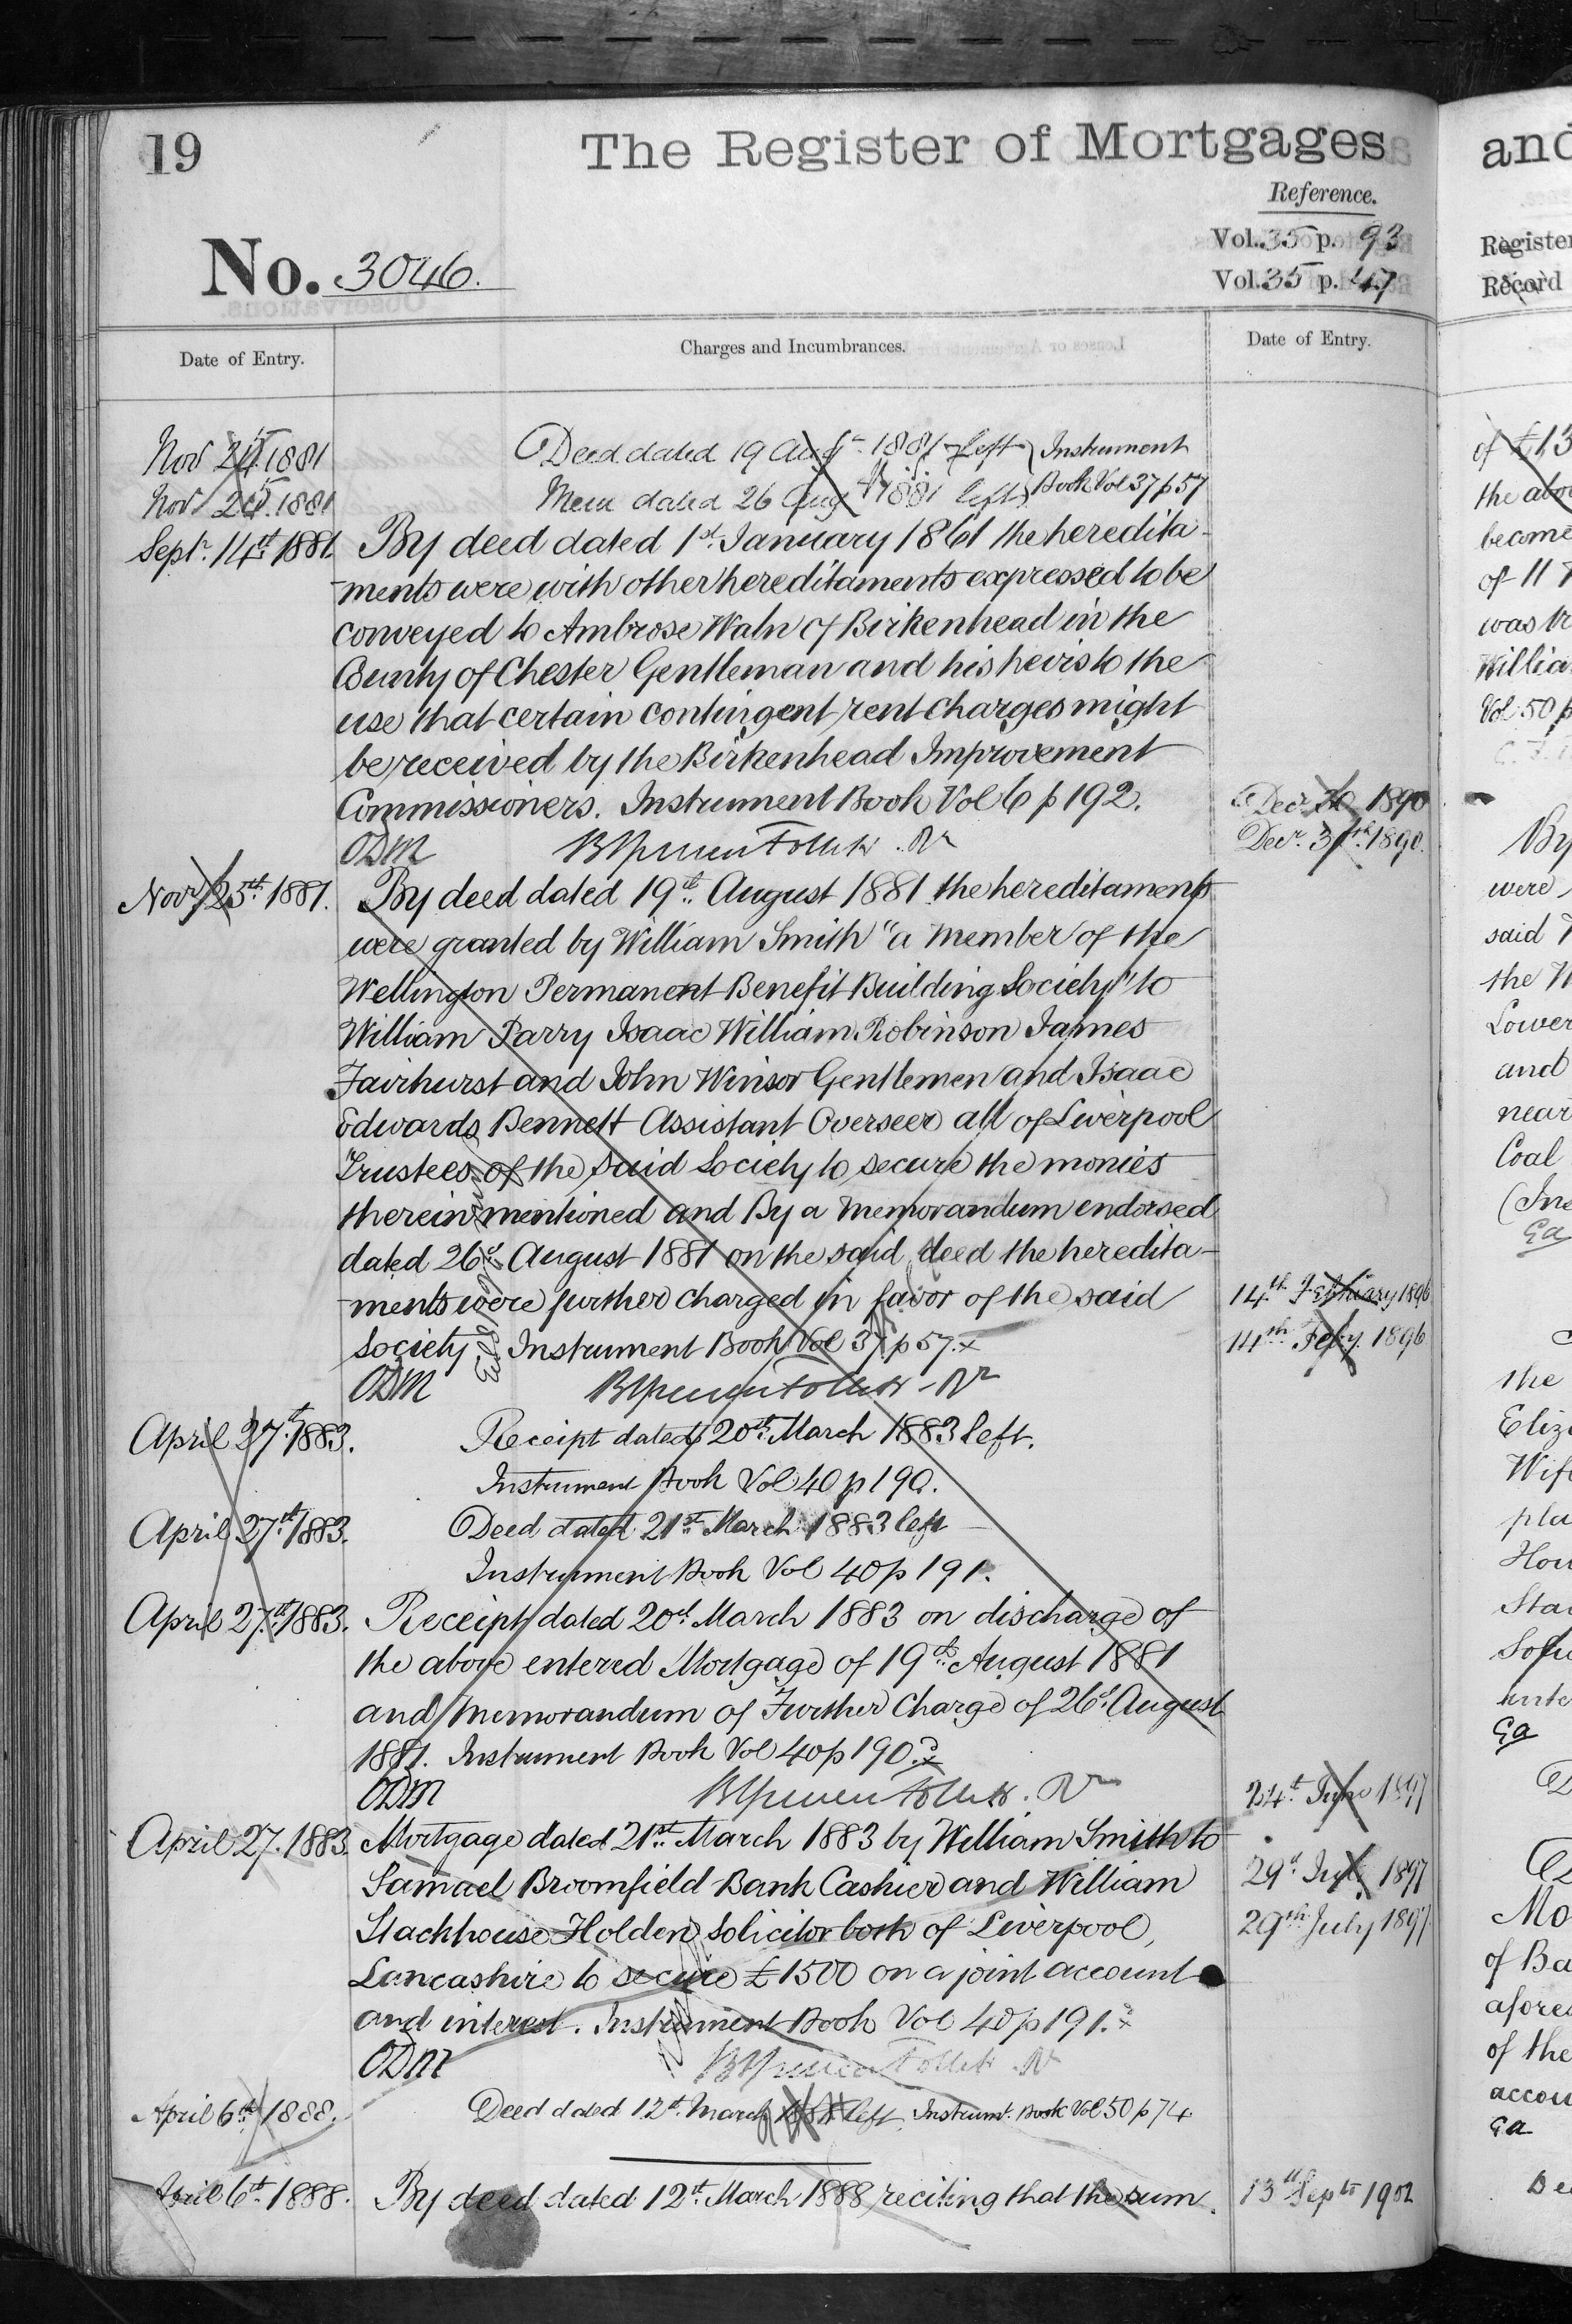 19
The Register of Mortgages
Reference.
No. 3046.
Vol. 35 p. 93
Vol. 35 p. 47
Date of Entry.
Charges and Incumbrances.
Date of Entry.
Nov 25 1881 Deed dated 19 Augt 1881 left } Instrument
Nov 25 1881 Mem dated 26 Aug 1881 left } Book Vol 37 p 57
Septr. 14th 1881. By deed dated 1st January 1861 the heredita-
ments were with other hereditaments expressed to be
conveyed to Ambrose Waln of Birkenhead in the
County of Chester Gentleman and his heirs to the
use that certain contingent rent charges might
be received by the Birkenhead Improvement
Commissioners. Instrument Book Vol 6 p 192.
ODM
Novr 25th 1881. By deed dated 19th August 1881 the hereditaments
were granted by William Smith "a member of the
Wellington Permanent Benefit Building Society" to
William Parry Isaac William Robinson James
Fairhurst and John Winsor Gentlemen and Isaac
Edwards Bennett Assistant Overseer all of Liverpool
Trustees of the said Society to secure the monies
therein mentioned and By a Memorandum endorsed
dated 26th August 1881 on the said deed the heredita-
ments were further charged in favor of the said
Society. Instrument Book Vol 37 p 57.
ODM
April 27th 1883. Receipt dated 20th March 1883 left.
Instrument Book Vol 40 p 190.
April 27th 1883. Deed dated 21st March 1883 left
Instrument Book Vol 40 p 191.
April 27th 1883. Receipt dated 20th March 1883 on discharge of
the above entered Mortgage of 19th August 1881
and Memorandum of Further Charge of 26th August
1881. Instrument Book Vol 40 p 190.
ODM
April 27. 1883 Mortgage dated 21st March 1883 by William Smith to
Samuel Broomfield Bank Cashier and William
Stackhouse Holden Solicitor both of Liverpool,
Lancashire to secure £1500 on a joint account
and interest. Instrument Book Vol 40 p 191.
ODM
April 6th 1888. Deed dated 12th March left. Instrumt. Book Vol 50 p 74
April 6th 1888. By deed dated 12th March 1888 reciting that the sum
Decr 1890
Decr. 1890.
14th February 1896
14th Feby. 1896
24th June 1897
29th July 1897
29th July 1897
13th Septr 1902
and
Register
Record
of £13
the abo
became
of 11
was
William
Vol 50 p
By
were
said
the
Lower
and
near
Coal
(Ins
the
Eliz
Wife
Hou
Mo
of Ba
afores
of the
accou